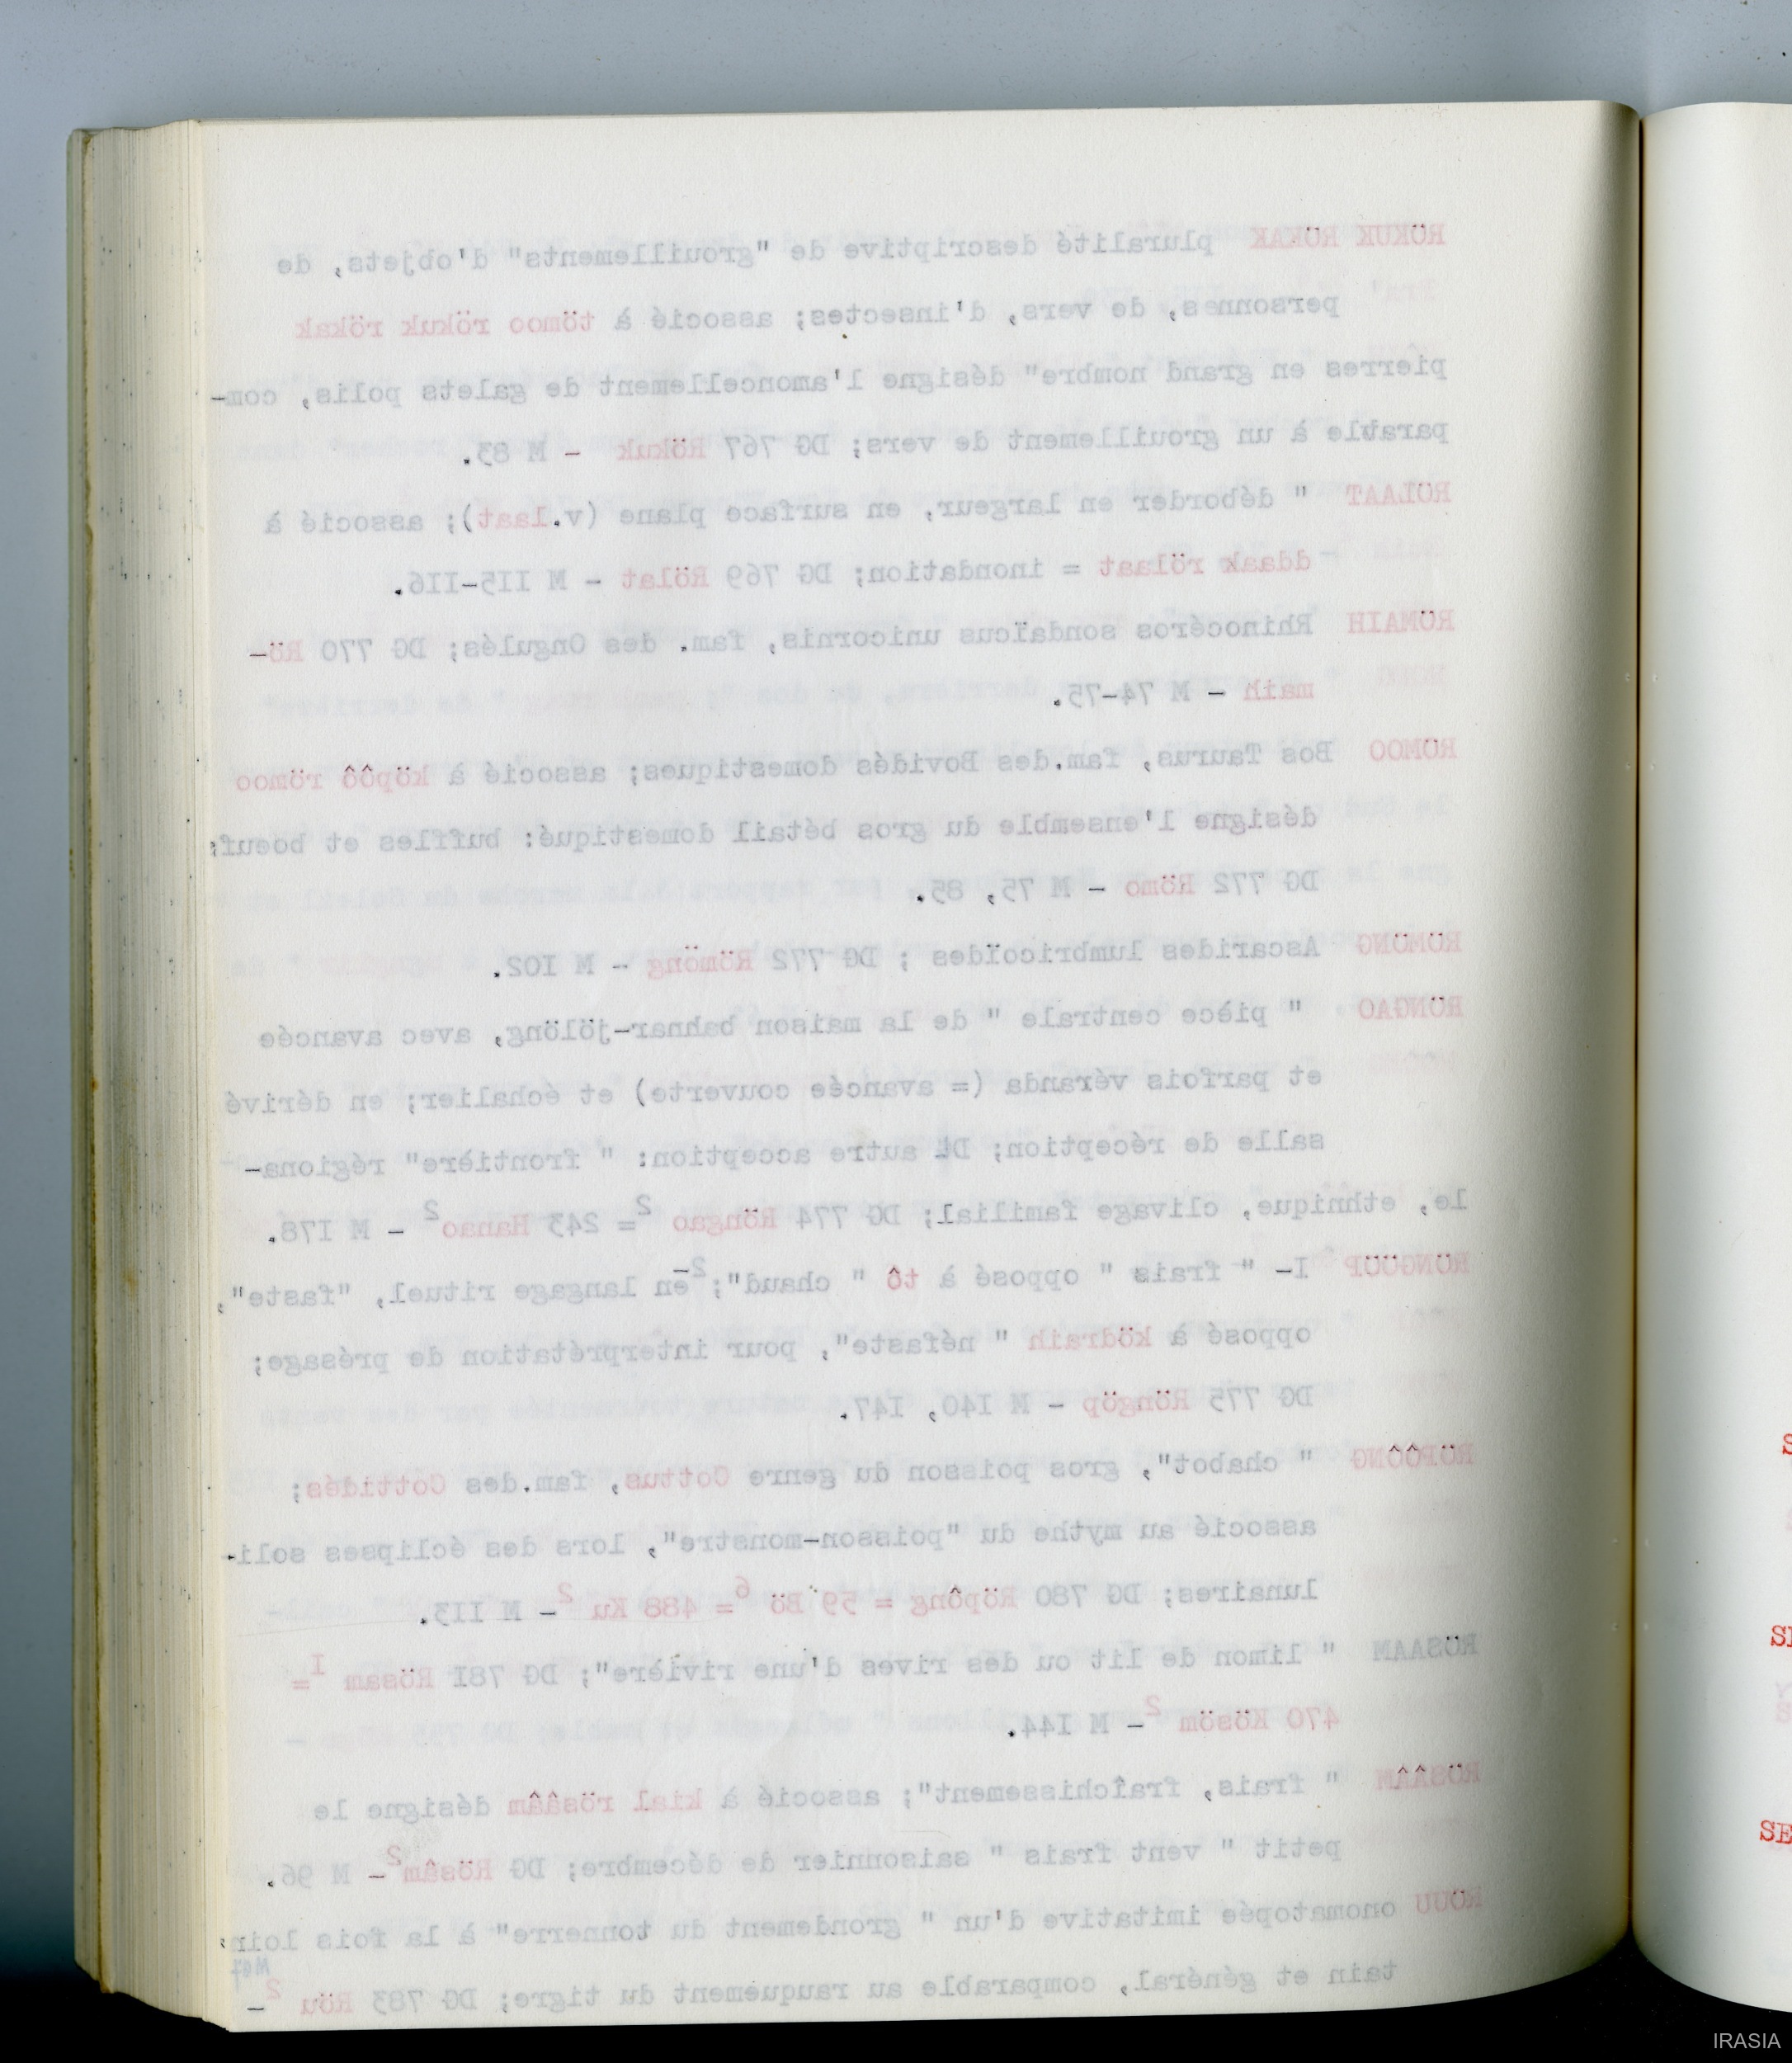 RÖKUK RÖKAK pluralité descriptive de "grouillements" d'objets, de
personnes, de vers, d'insectes; associé à tömoo rökuk rökak
pierres en grand nombre" désigne l'amoncellement de galets polis, com-
parable à un grouillement de vers; DG 767 Rökuk - M 83.
RÖLAAT " déborder en largeur, en surface plane (v.laat); associé à
ddaak rölaat = inondation; DG 769 Rölat - M II5-II6.
RÖMAIH Rhinocéros sondaïcus unicornis, fam. des Ongulés; DG 770 Rö-
maih - M 74-75.
RÖMOO Bos Taurus, fam.des Bovidés domestiques; associé à köpôô römoo
désigne l'ensemble du gros bétail domestiqué: buffles et boeufs
DG 772 Römo - M 75, 85.
RÖMÖNG Ascarides lumbricoïdes ; DG 772 Römöng - M I02.
RÖNGAO " pièce centrale " de la maison bahnar-jölöng, avec avancée
et parfois véranda (= avancée couverte) et échalier; en dérivé
salle de réception; autre acception: " frontière" régiona-
le, ethnique, clivage familial; DG 774 Röngao 2= 243 Hanao 2 - M I78.
RÖNGÜÜP I- " frais " opposé à tô " chaud"; 2-en langage rituel, "faste",
opposé à ködraih " néfaste", pour interprétation de présage;
DG 775 Röngöp - M I40, I47.
RÖPÔÔNG " chabot", gros poisson du genre Cottus, fam.des Cottidés;
associé au mythe du "poisson-monstre", lors des éclipses soli-
lunaires; DG 780 Röpông = 59 Bö 6= 488 Ku 2- M II3.
RÖSAAM " limon de lit ou des rives d'une rivière"; DG 78I Rösam I=
470 Kösöm 2- M I44.
RÖSÂÂM " frais, fraîchissement"; associé à kial rösââm désigne le
petit " vent frais " saisonnier de décembre; DG Rösâm 2- M 96.
RÖUU onomatopée imitative d'un " grondement du tonnerre" à la fois loin-
tain et général, comparable au rauquement du tigre; DG 783 Röu 2-
IRASIA